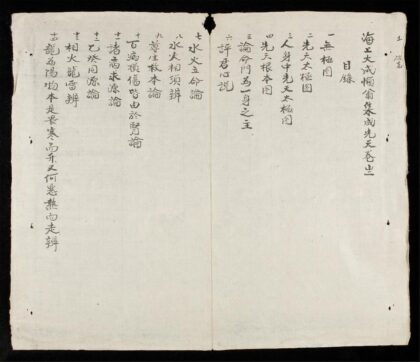 海上火 翁集成先天卷
目錄
一 無極图
二 先天太極图
三 人身中先天太極图
四 先天根本图
五 論命門為一身之主
六 評君心説
七 水火立命論
八 水火相須辨
九 尊生救本論
十 百病損傷皆由於腎論
十一 諸病求源論
十二 乙癸同源論
十三 相火龍雷辨
龍為陽物本是畏寒而 又何惡熱而走辨